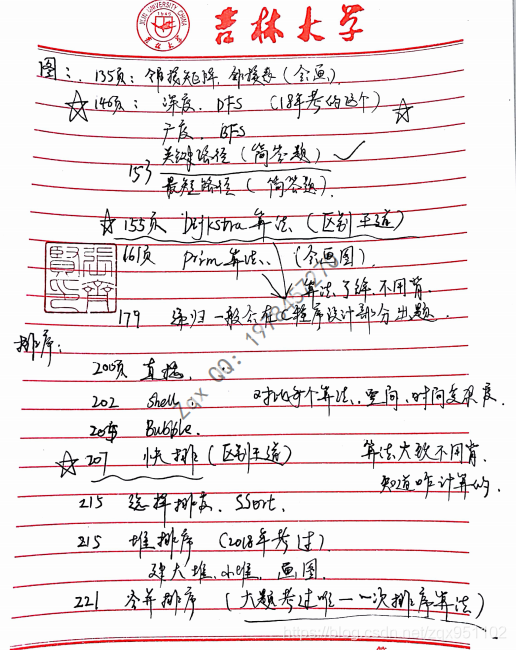 JILIN UNIVERSITY CHINA
1946
吉林大学
图：135页：邻接矩阵、邻接表（会画）
☆146页：深度、DFS（18年考的这个）☆
广度、BFS
关键路径（简答题）✓
153
最短路径（简答题）
☆155页 Dijkstra算法（区别王道）
161页 Prim算法、（会画图）
算法了解不用背
179 递归一般会在C程序设计部分出题
排序：
200页 直接
202 shell 对比每个算法、空间、时间复杂度
205 Bubble.
☆207 快排（区别王道） 算法大致不用背
知道咋计算的
215 选择排序、SSort.
215 堆排序（2018年考过）
建大堆、小堆、画图
221 合并排序（大题考过唯一一次排序算法）
Zqx QQ：
https://blog.csdn.net/zqx951102